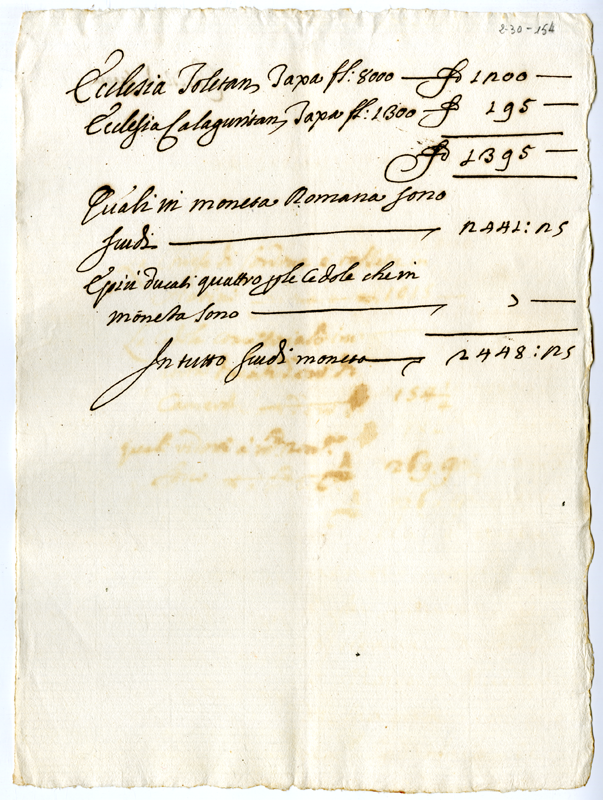 2-30-154
Ecclesia Toletan Taxa fl: 8000 — 1200 —
Ecclesia Calaguritan Taxa fl: 1300 — 195 —
1395 —
Quali in moneta Romana sono
scudi — 2441:25
E piu ducati quattro p le Cedole che in
moneta sono — 7 —
In tutto scudi moneta — 2448:25
154½